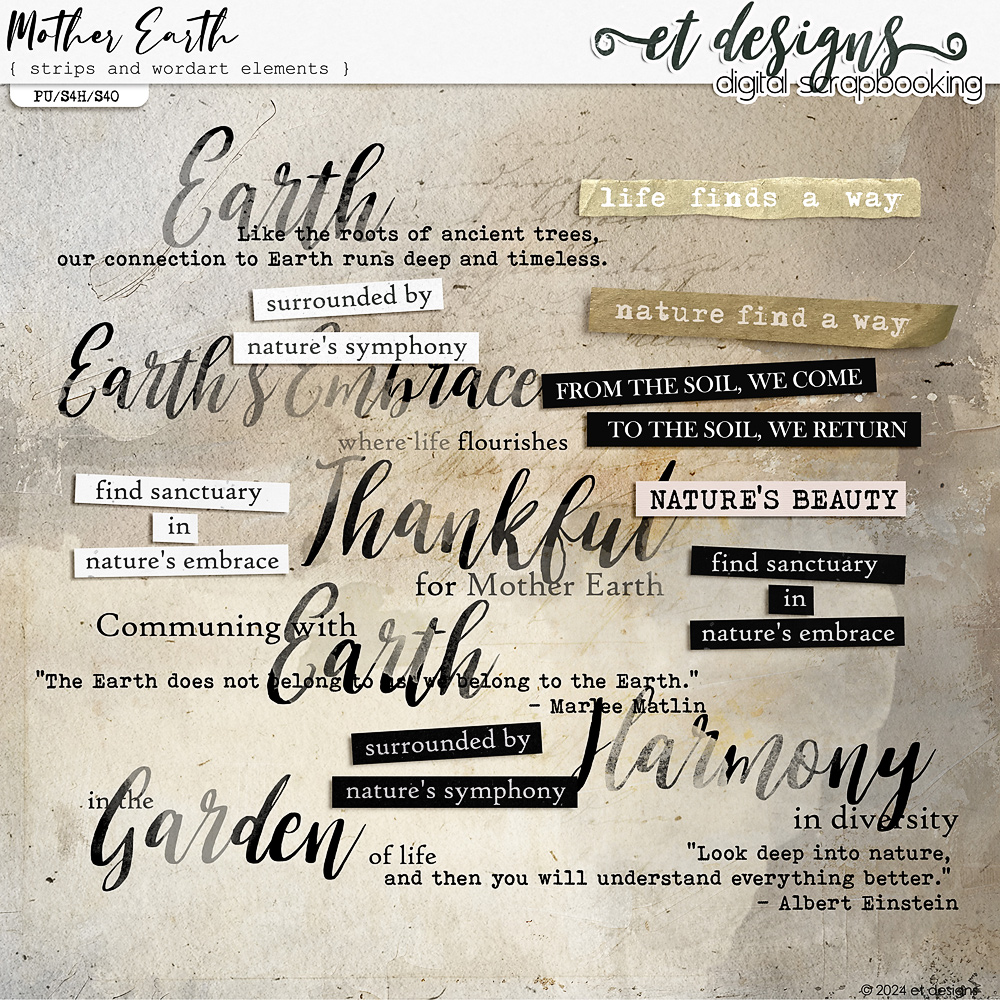 Mother Earth
{ strips and wordart elements }
PU/S4H/S4O
et designs
digital scrapbooking
Earth
Like the roots of ancient trees,
our connection to Earth runs deep and timeless.
life finds a way
surrounded by
nature's symphony
nature find a way
Earth's Embrace
where life flourishes
FROM THE SOIL, WE COME
TO THE SOIL, WE RETURN
find sanctuary
in
nature's embrace
Thankful
for Mother Earth
NATURE'S BEAUTY
find sanctuary
in
nature's embrace
Communing with
Earth
"The Earth does not belong to us, we belong to the Earth."
- Marlee Matlin
surrounded by
nature's symphony
Harmony
in diversity
in the
Garden
of life
"Look deep into nature,
and then you will understand everything better."
- Albert Einstein
© 2024 et designs